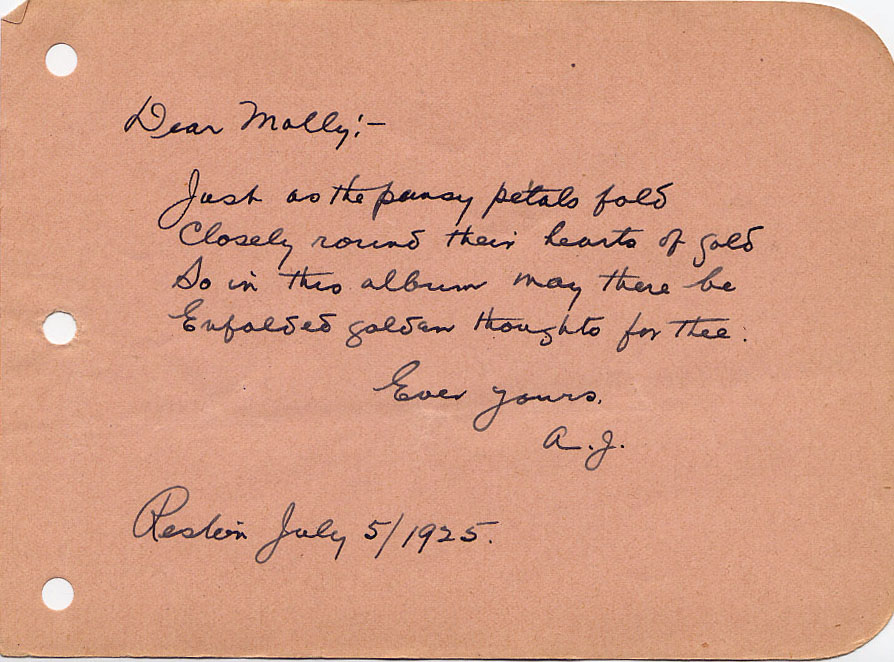 Dear Molly:-
Just as the pansy petals fold
Closely round their hearts of gold
So in this album may there be
Enfolded golden thoughts for thee.
Ever yours.
A.J.
Reston July 5/1925.